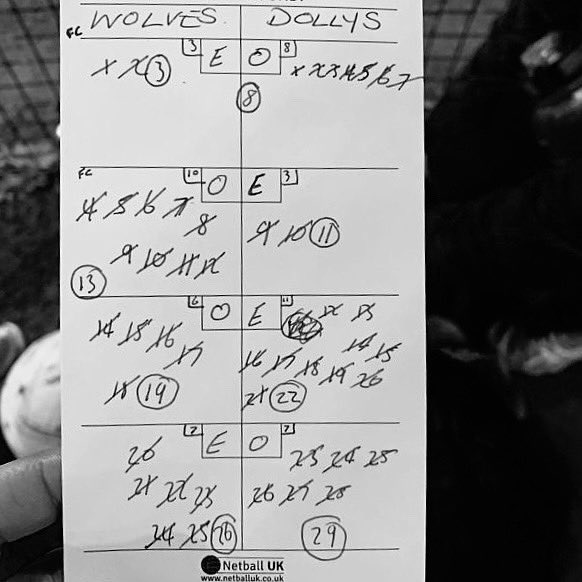 WOLVES DOLLYS
FC
3 E O 8
X 2 3 X 2 3 4 5 6 7
8
FC 10 O E 3
4 5 6 7
8 9 10 11
9 10 11 12
13
6 O E 11
14 15 16 12 13
17 14 15
16 17 18 19 20
18 19 21 22
7 E O 7
20 23 24 25
21 22 23 26 27 28
24 25 26 29
Netball UK
www.netballuk.co.uk